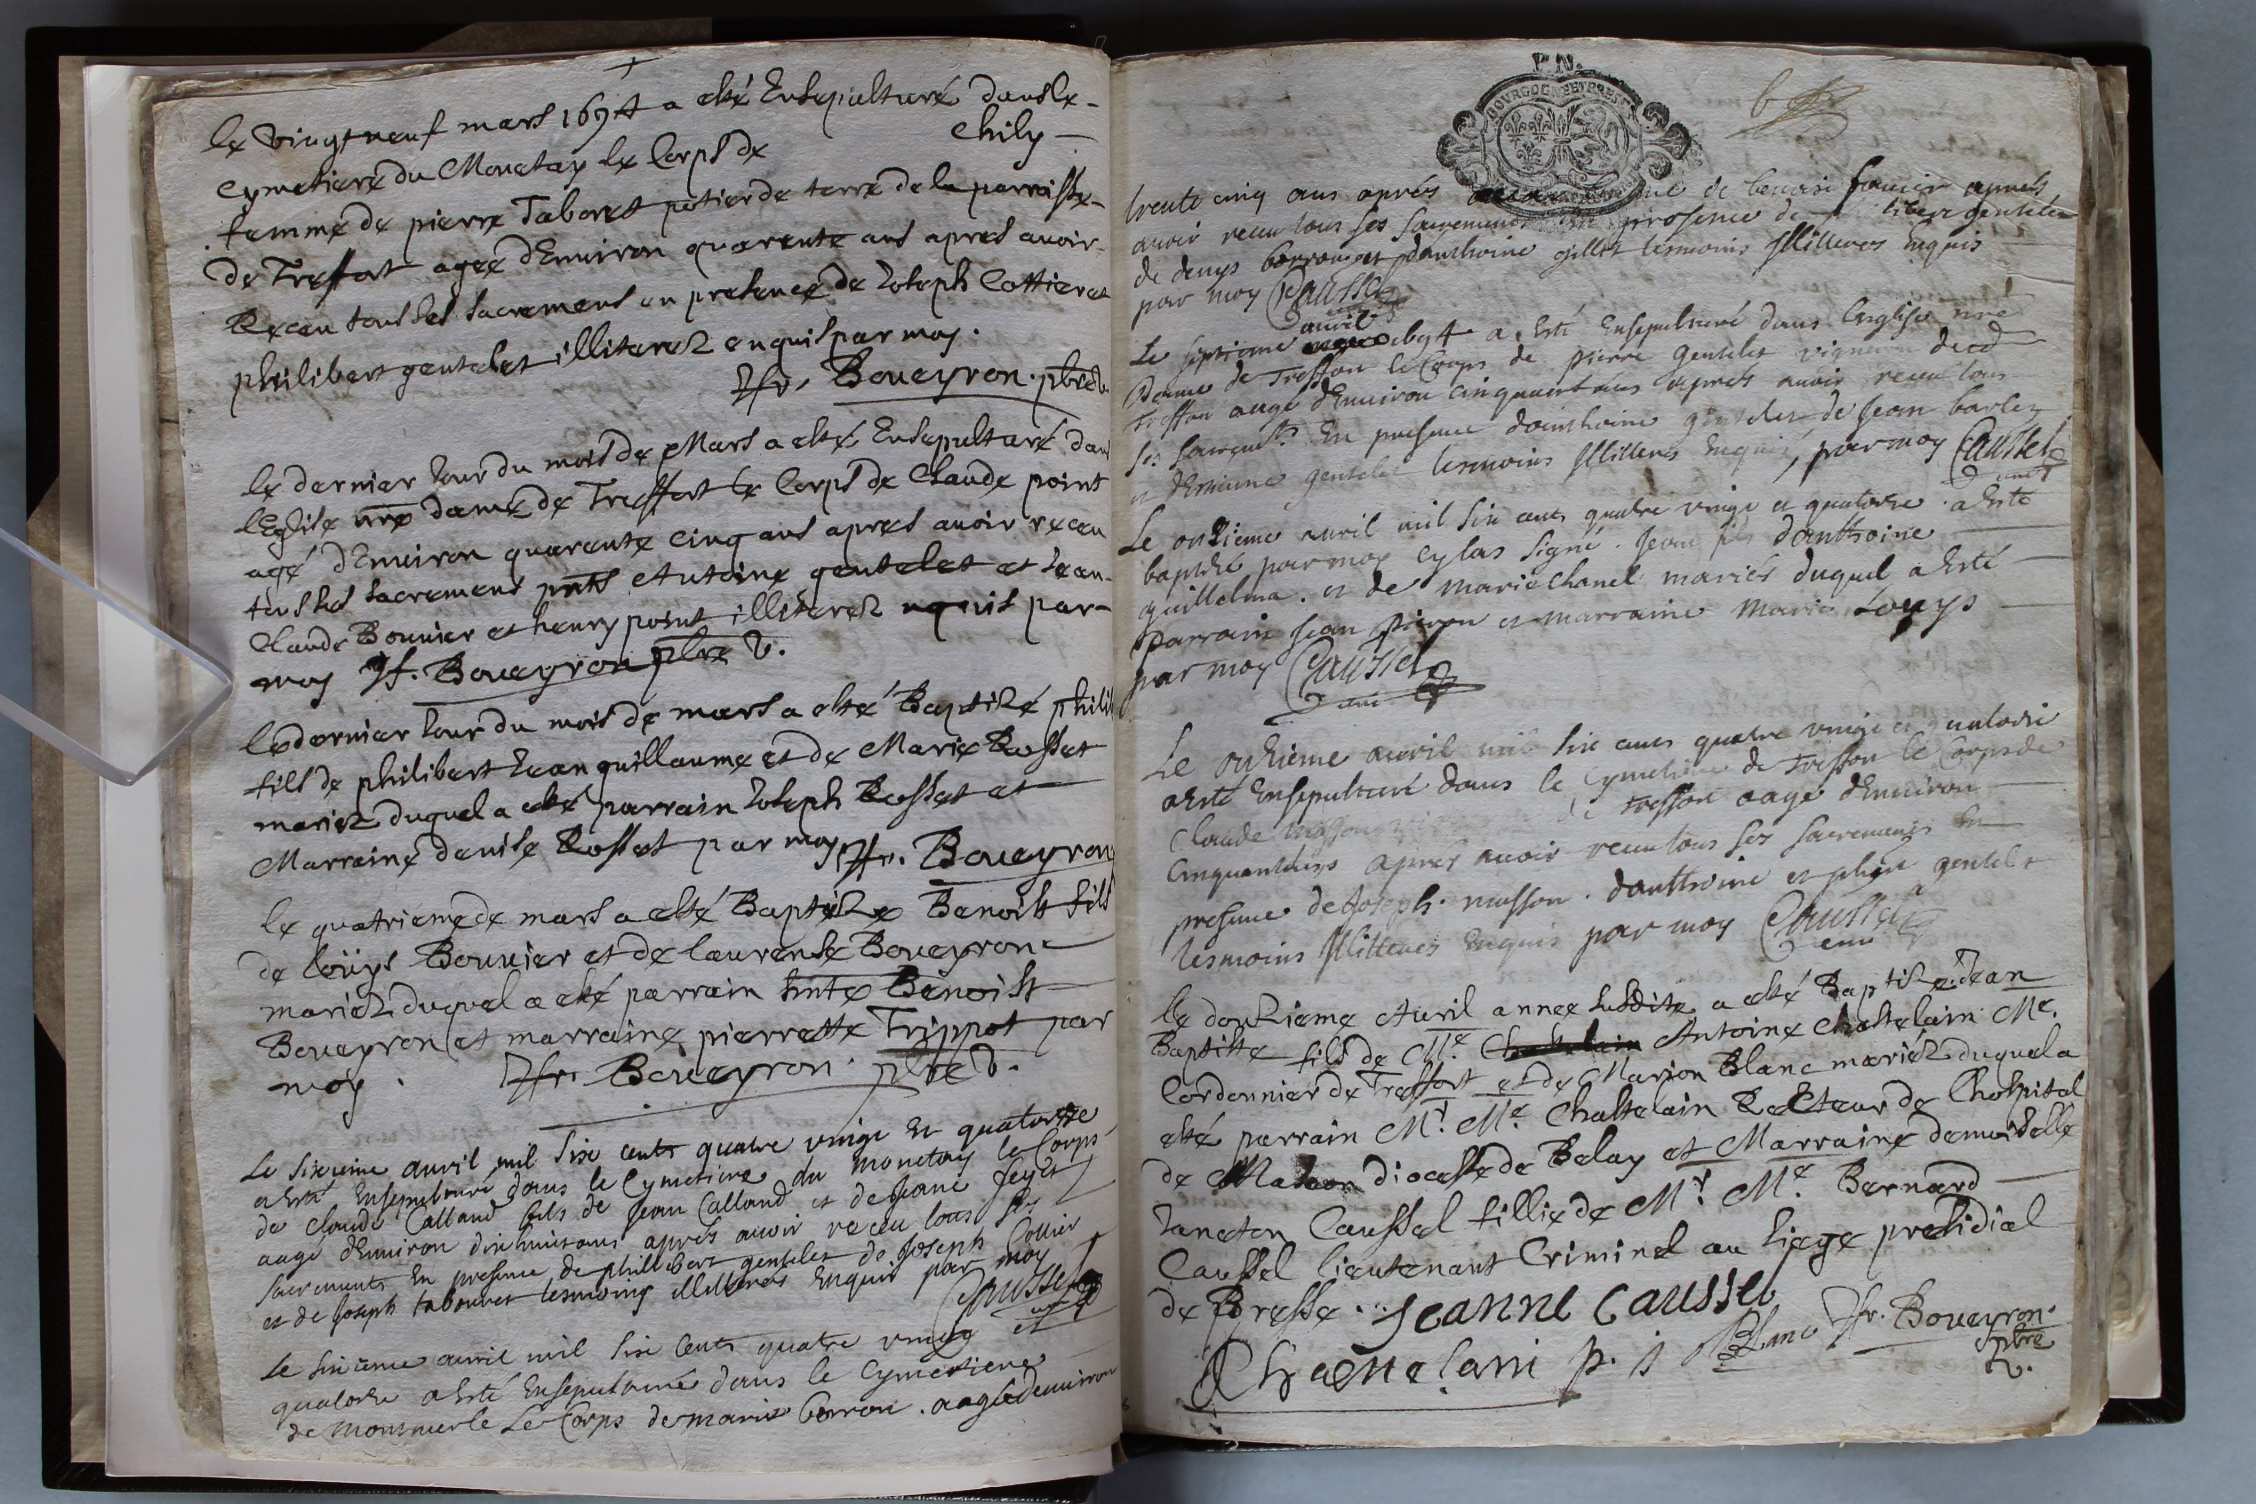 le vingt neuf mars 1694 a esté Ensepulturé dans le
Cymetiere du Monetay le Corps de Chily
femme de pierre Taboret potier de terre de la parroisse
de Treffort agee d'Environ quarante ans apres avoir
Receu tous ses sacremens en presence de Joseph Cottier et
philibert gentelet illiterez enquis par moy.
Boueyron. pbre v.
le dernier Jour du mois de Mars a esté Ensepulturé dans
l'Eglise nre dame de Treffort le Corps de Claude point
agé d'Environ quarante cinq ans apres avoir receu
tous ses sacremens pnts Antoine gentelet et Jean
Claude Bouvier et henry point illiterez enquis par
moy Boueyron pbre v.
le dernier Jour du mois de mars a esté Baptizé phili
fils de philibert Jean guillaume et de Marie Rosset
mariez duquel a esté parrain Joseph Rosset et
Marraine denise Rosset par moy Boueyron
le quatrieme de mars a esté Baptize Benoist fils
de loüys Bouvier et de laurense Boueyron
mariez duquel a esté parrain Benoist
Boueyron et marraine pierrette Trippot par
moy. Boueyron. pbre v.
Le sixieme avril mil six cents quatre vingt et quatorze
a Esté Ensepulturé dans le Cymetiere du monetay le Corps
de claude Calland fils de Jean Calland et de Jeane feyet
aagé d'Environ dixhuict ans après avoir receu tous ses
sacrements En presence de phillibert gentelet de Joseph Cottier
et de Joseph tabouret tesmoins illiteres Enquis par moy
Caussel
Le sixieme avril mil six cents quatre vingt et
quatorze a Esté Ensepulturé dans le Cymetiere
de Montmerle Le Corps de marie borron. aagée denviron
P.N.
BOURGOGNE ET BRESSE
6
trente cinq ans après de benoist apres
avoir receu tous ses sacrements En presence de gentelet
de denys borron et danthoine gillet tesmoins Illiteres Enquis
par moy Caussel
Le septieme avril 1694 a Esté Ensepulturé dans Leglise nre
Dame de Treffort le Corps de pierre gentelet vigneron dud
Treffort aagé d'Environ cinquante ans après avoir receu tous
ses sacremts En presence dainthoine gentelet de Jean barlez
et d'Estienne gentelet tesmoins Illiteres Enquis, par moy Caussel
Le onzieme avril mil six cents quatre vingt et quatorze a Esté
baptisé par moy cy bas signé. Jean fils danthoine
guillelma. et de marie Chanel mariés duquel a Esté
parrain Jean et marraine Marie Louys
par moy Caussel
Le onzieme avril mil six cents quatre vingt et quatorze
a Esté Ensepulturé dans le Cymetiere de Treffort le Corps de
Claude Treffort aagé d'Environ
Cinquante ans après avoir receu tous ses sacrements En
presence de Joseph masson. danthoine et gentelet
tesmoins Illiteres Enquis par moy Caussel
le douzieme Avril annee susdite a esté Baptize Jean
Baptiste fils de Me. Antoine Chastelain Me.
Cordonnier de Treffort et de Marion Blanc mariez duquel a
esté parrain Mr. Me. Chastelain Recteur de l'hospital
de diocesse de Belay et Marraine demoiselle
Janeton Caussel fillie de Mr. Me. Bernard
Caussel lieutenant Criminel au siege presidial
de Bresse. Jeanne Caussel
Chastelain p. Blanc Boueyron.
pbre
v.